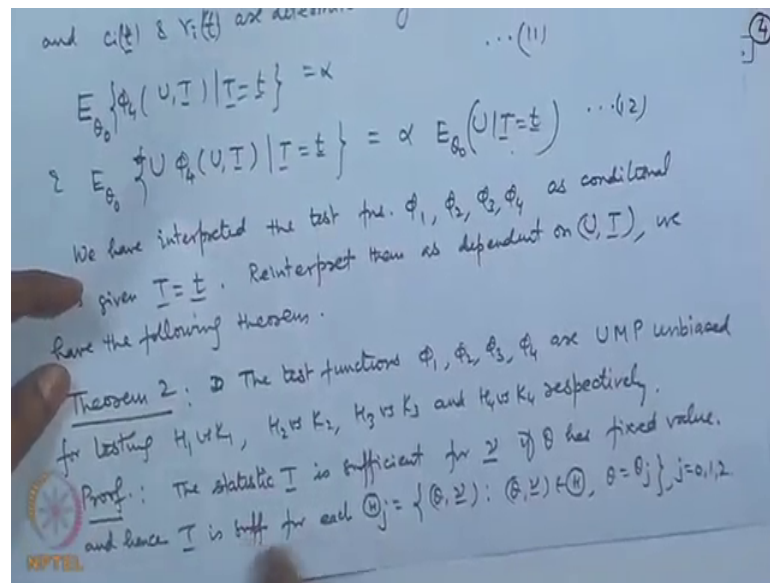 and c_i(t) & γ_i(t) are
... (11)
④
E_θ₀ {Φ₄(U, T) | T = t} = α
& E_θ₀ {U Φ₄(U, T) | T = t} = α E_θ₀(U | T = t) ... (12)
We have interpreted the test fns. Φ₁, Φ₂, Φ₃, Φ₄ as conditional
given T = t. Reinterpret them as dependent on (U, T), we
have the following theorem.
Theorem 2: The test functions Φ₁, Φ₂, Φ₃, Φ₄ are UMP unbiased
for testing H₁ vs K₁, H₂ vs K₂, H₃ vs K₃ and H₄ vs K₄ respectively.
Proof.: The statistic T is sufficient for ν if θ has fixed value.
and hence T is suff for each Ⓗ_j = {(θ, ν) : (θ, ν) ∈ Ⓗ, θ = θ_j}, j = 0, 1, 2
NPTEL